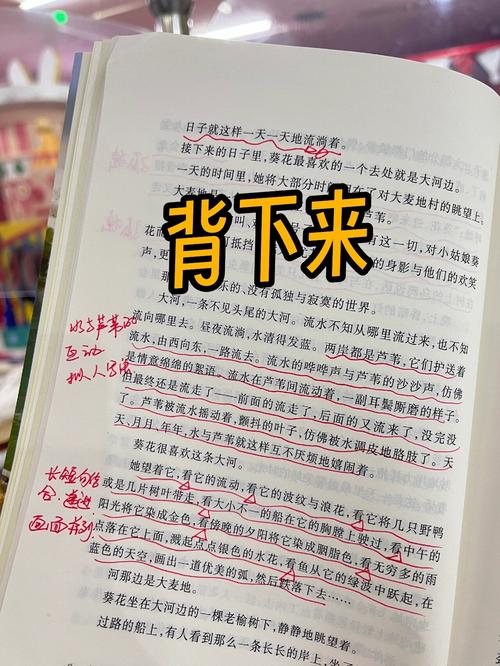 日子就这样一天一天地流淌着。
接下来的日子里,葵花最喜欢的一个去处就是大河边。
一天的时间里,她将大部分时 在了对大麦地村的眺望上
大麦地是 芦苇。
花而 叫、 有这一切,对小姑娘葵
声,更 打抵挡 的身影与他们的欢笑
背下来
那 乐的、没有孤独与寂寞的世界。
大河,一条不见头尾的大河。流水不知从哪里流过来,也不知
流向哪里去。昼夜流淌,水清得发蓝。两岸都是芦苇,它们护送着
流水,由西向东,一路流去。流水的哗哗声与芦苇的沙沙声,仿佛
是情意绵绵的絮语。流水在芦苇间流动着,一副耳鬓厮磨的样子。
但最终还是流走了——前面的流走了,后面的又流来了,没完没
了。芦苇被流水摇动着,颤抖的叶子,仿佛被水调皮地胳肢了。天
天、月月、年年,水与芦苇就这样互不厌烦地嬉闹着。
葵花很喜欢这条大河。
她望着它,看它的流动,看它的波纹与浪花,看它将几只野鸭
或是几片树叶带走,看大小不一的船在它的胸膛上驶过,看中午的
阳光将它染成金色,看傍晚的夕阳将它染成胭脂色,看无穷多的雨
点落在它上面,溅起点点银色的水花,看鱼从它的绿波中跃起,在
蓝色的天空,画出一道优美的弧,然后跌落下去……
河那边是大麦地。
葵花坐在大河边的一棵老榆树下,静静地眺望着。
过路的船上,有人看到那么一条长长的岸上,坐了
水与芦苇的
互动
拟人写法
长短句结
合、递进
画面排列